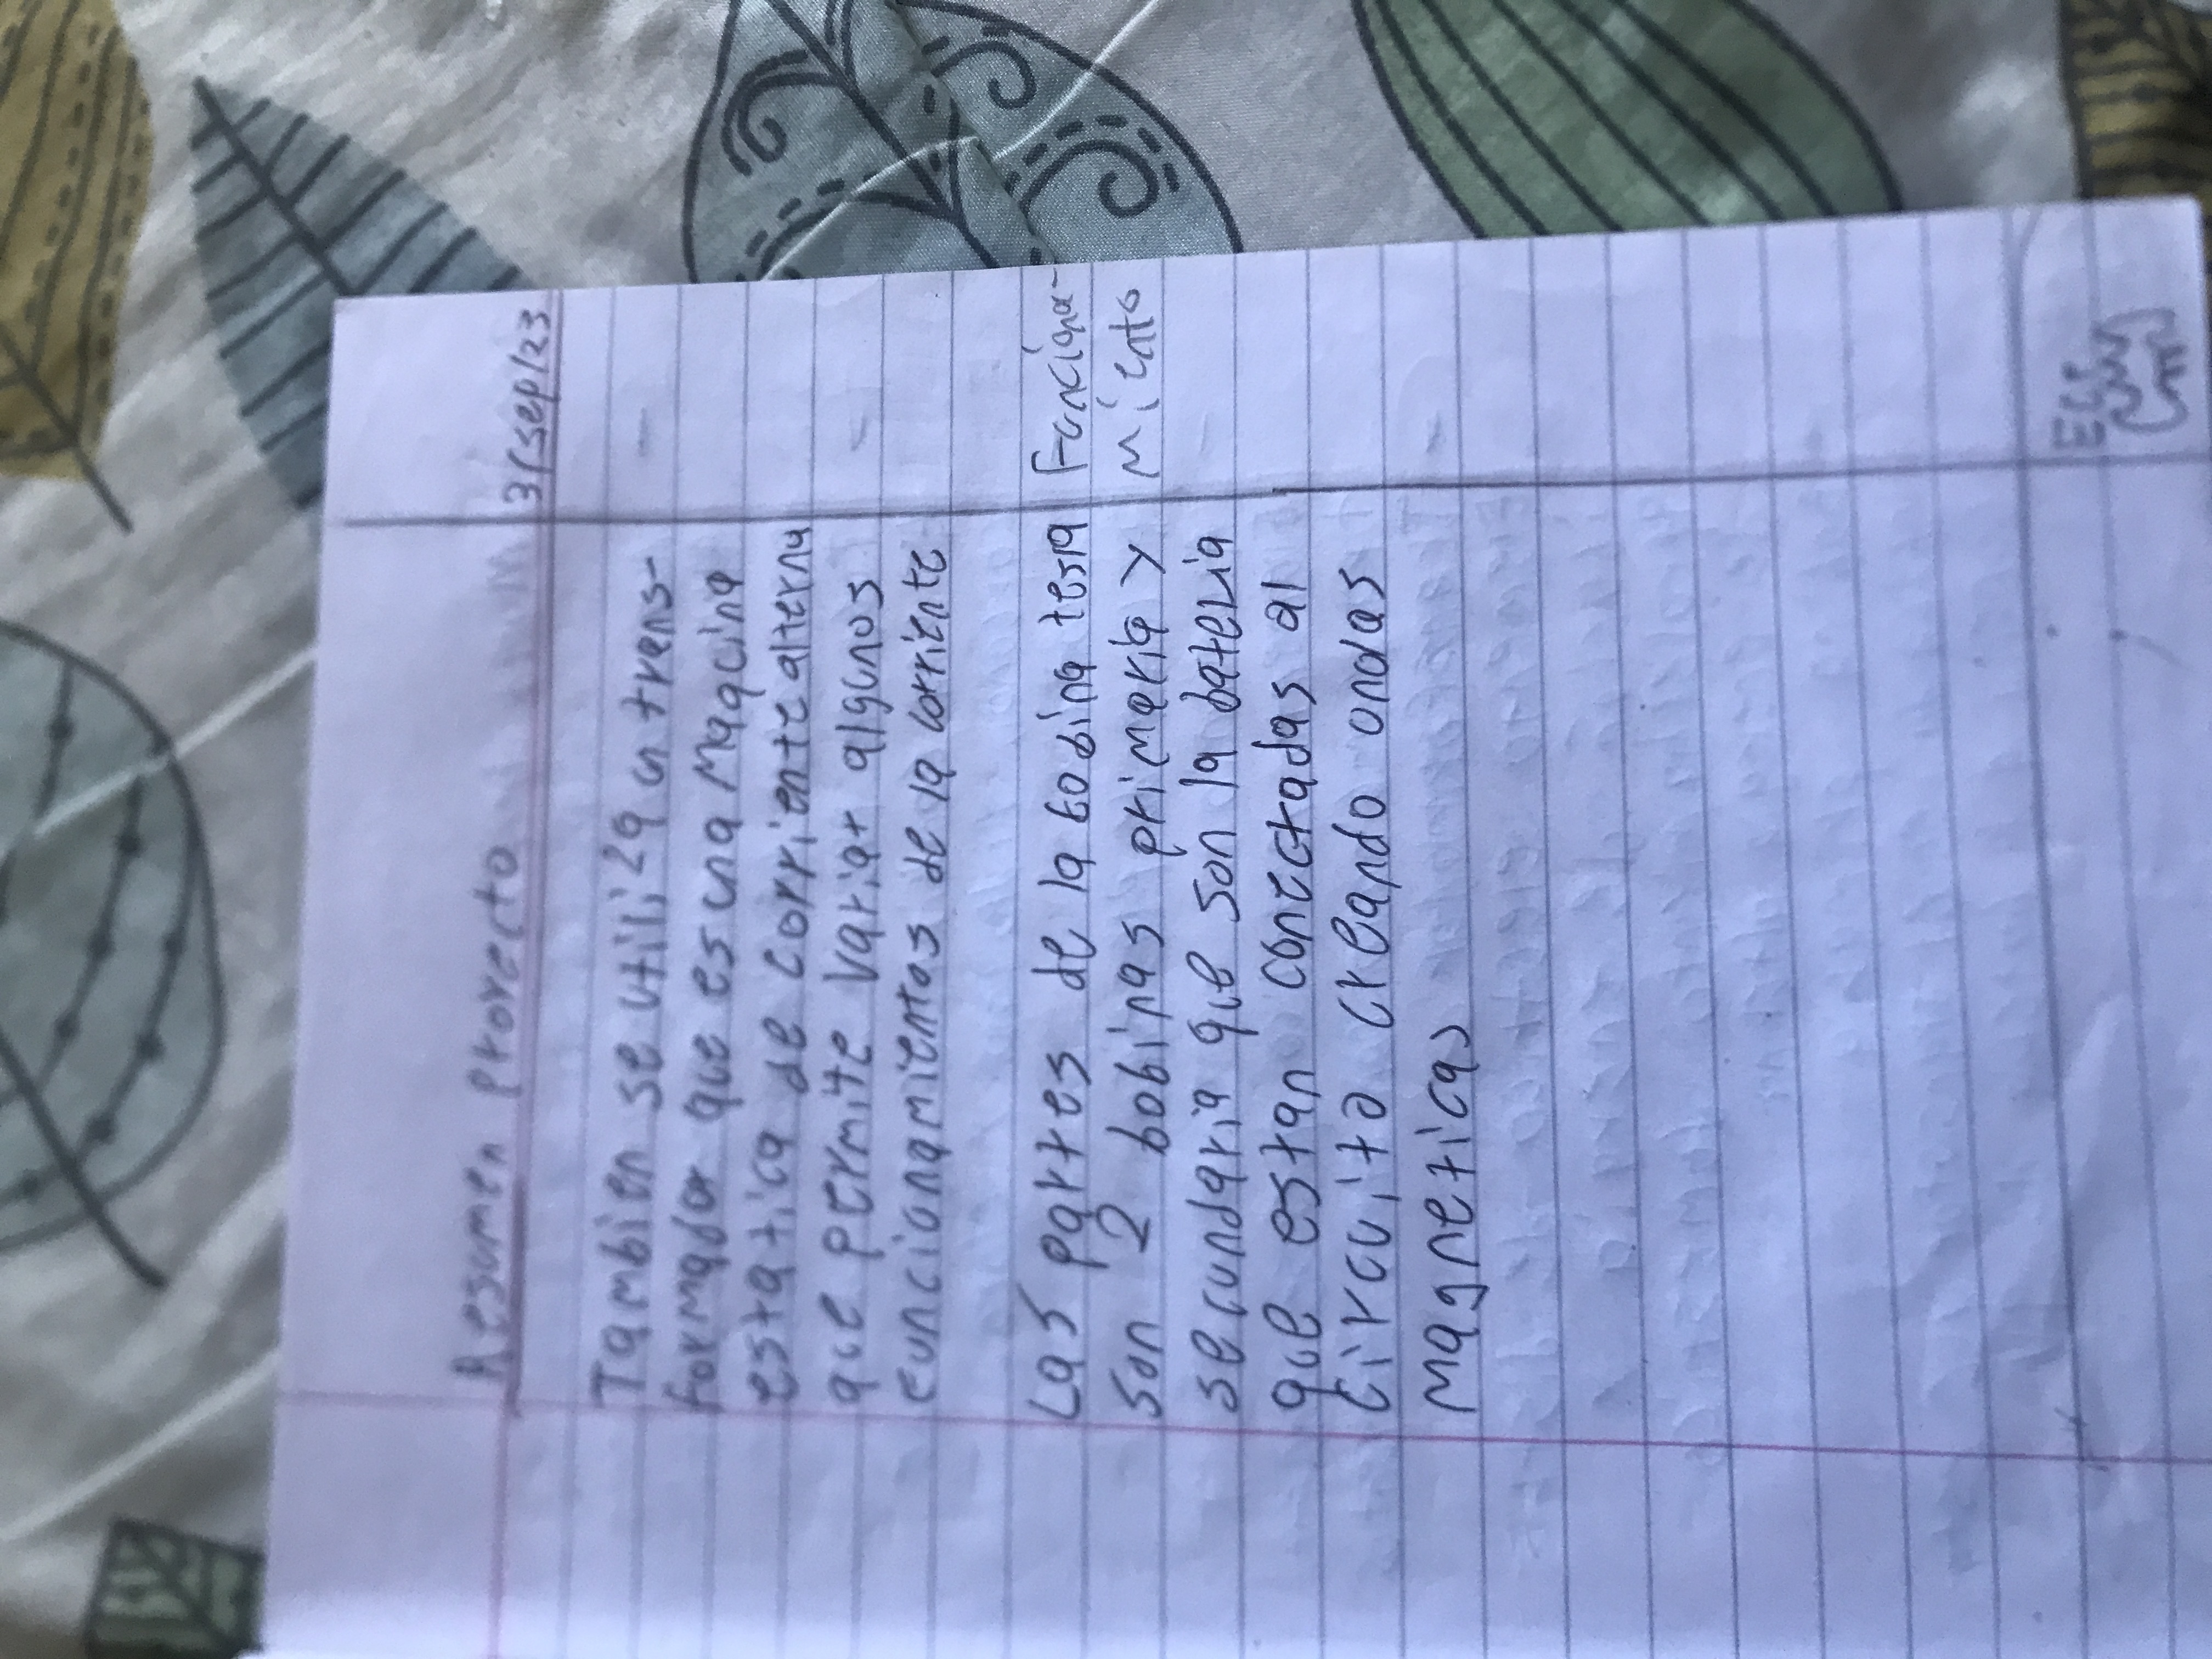 Resumen proyecto
3/sep/23
Tambien se utiliza un trans-
formador que es una maqcina
estatica de corriente alterna
que permite variar algunos
funcionamientos de la corriente
Las partes de la bobina tesla
son 2 bobinas primaria y
secundaria que son la bateria
que estan conectradas al
circuito creando ondas
magneticas
Funciona-
miento